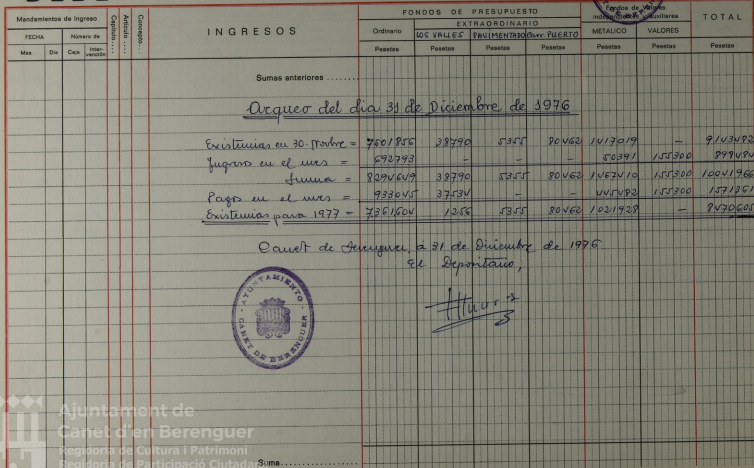 Mandamientos de Ingreso
FECHA
Número de
Mes Día Caja Intervención
Capítulo....
Artículo....
Concepto....
INGRESOS
FONDOS DE PRESUPUESTO
Ordinario
EXTRAORDINARIO
LOS VALLES PAVIMENTADO Carr. PUERTO
Fondos de Valores
independientes y auxiliares
METALICO VALORES
TOTAL
Pesetas Pesetas Pesetas Pesetas Pesetas Pesetas Pesetas
Sumas anteriores ........
Arqueo del dia 31 de Diciembre de 1976
Existencias en 30 = 7601856 38790 5355 80462 1417019 - 9143482
Ingresos en el mes = 692793 - - - 50391 155300 898484
Suma = 8294649 38790 5355 80462 1467410 155300 10041966
Pagos en el mes = 933045 37534 - - 445482 155300 1571361
Existencias para 1977 = 7.361,604 1256 5355 80462 1021928 - 8470605
Canet de Berenguer, a 31 de Diciembre de 1976
El Depositario,
AYUNTAMIENTO
CANET DE BERENGUER
Ajuntament de
Canet d'en Berenguer
Regidoria de Cultura i Patrimoni
Regidoria de Participació Ciutadana
Suma..................